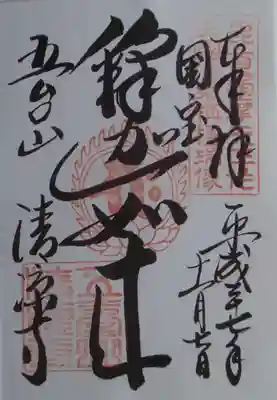 奉拝
国宝
釋迦如来
五台山 清凉寺
平成二十七年
十一月七日